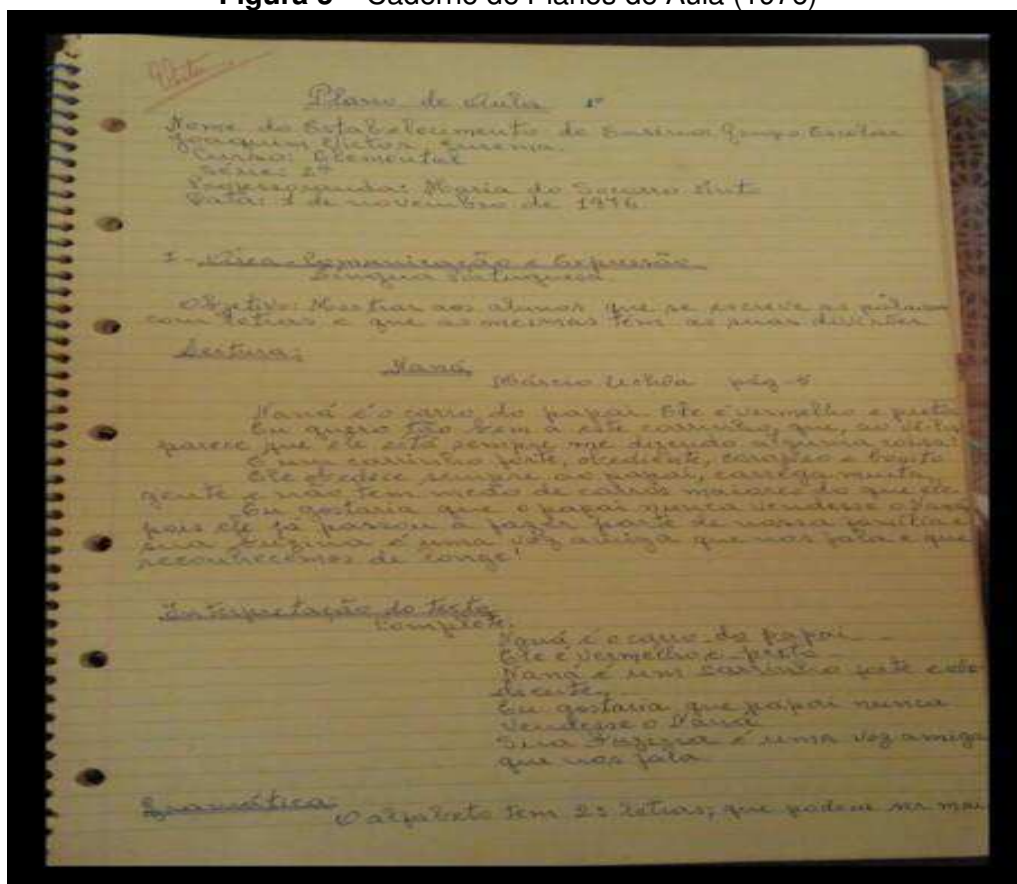 Figura 3 – Caderno de Planos de Aula (1976)
Plano de Aula 1º
Nome do Estabelecimento de Ensino: Grupo Escolar
Joaquim
Curso: Elemental
Série: 2ª
Maria do Socorro
Data: 1 de novembro de 1976.
I - Comunicação e Expressão
Língua Portuguesa.
Objetivo: Mostrar aos alunos que se escreve as
com letras e que as mesmas têm as suas divisões
Leitura:
Naná
Márcio pág-5
Naná é o carro do papai. Ele é vermelho e preto
Eu quero tão bem a este carrinho, que, ao
parece que ele está sempre me dizendo alguma coisa!
É um carrinho forte, obediente, corajoso e bonito
Ele obedece sempre ao papai, carrega muita
gente e não tem medo de carros maiores do que ele
Eu gostaria que o papai nunca vendesse o Naná
pois ele já passou a fazer parte de nossa família e
sua buzina é uma voz amiga que nos fala e que
reconhecemos de longe!
Interpretação do texto
Complete:
Naná é o carro do papai
Ele é vermelho e preto
Naná é um carrinho forte e obe-
diente
Eu gostaria que papai nunca
vendesse o Naná
Sua buzina é uma voz amiga
que nos fala
Gramática:
O alfabeto tem letras, que podem ser mai